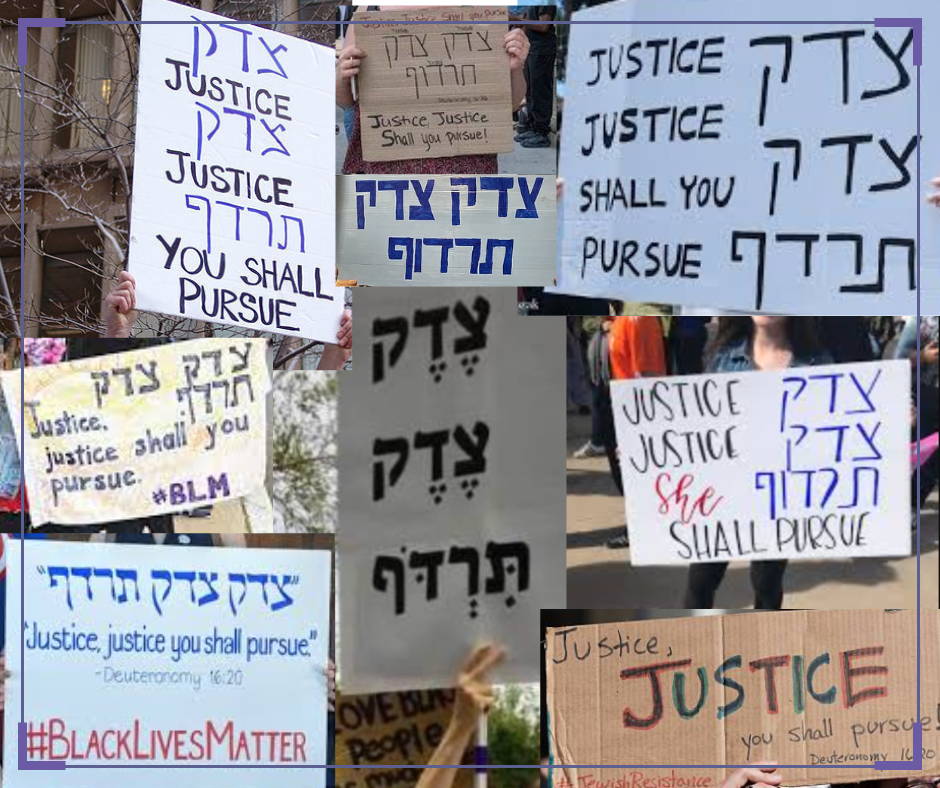 צדק
JUSTICE
צדק
JUSTICE
תרדף
YOU SHALL
PURSUE
Justice, Justice Shall you pursue
צדק צדק
תרדוף
Justice, Justice
Shall you pursue!
צדק צדק
תרדוף
JUSTICE צדק
JUSTICE
SHALL YOU צדק
PURSUE תרדף
צדק צדק
תרדף
Justice,
justice shall you
pursue.
#BLM
צֶדֶק
צֶדֶק
תִּרְדֹּף
JUSTICE צדק
JUSTICE צדק
She תרדוף
SHALL PURSUE
"צדק צדק תרדף"
"Justice, justice you shall pursue."
-Deuteronomy 16:20
#BLACKLIVESMATTER
People
Justice,
JUSTICE
you shall pursue!
Deuteronomy 16:20
#JewishResistance